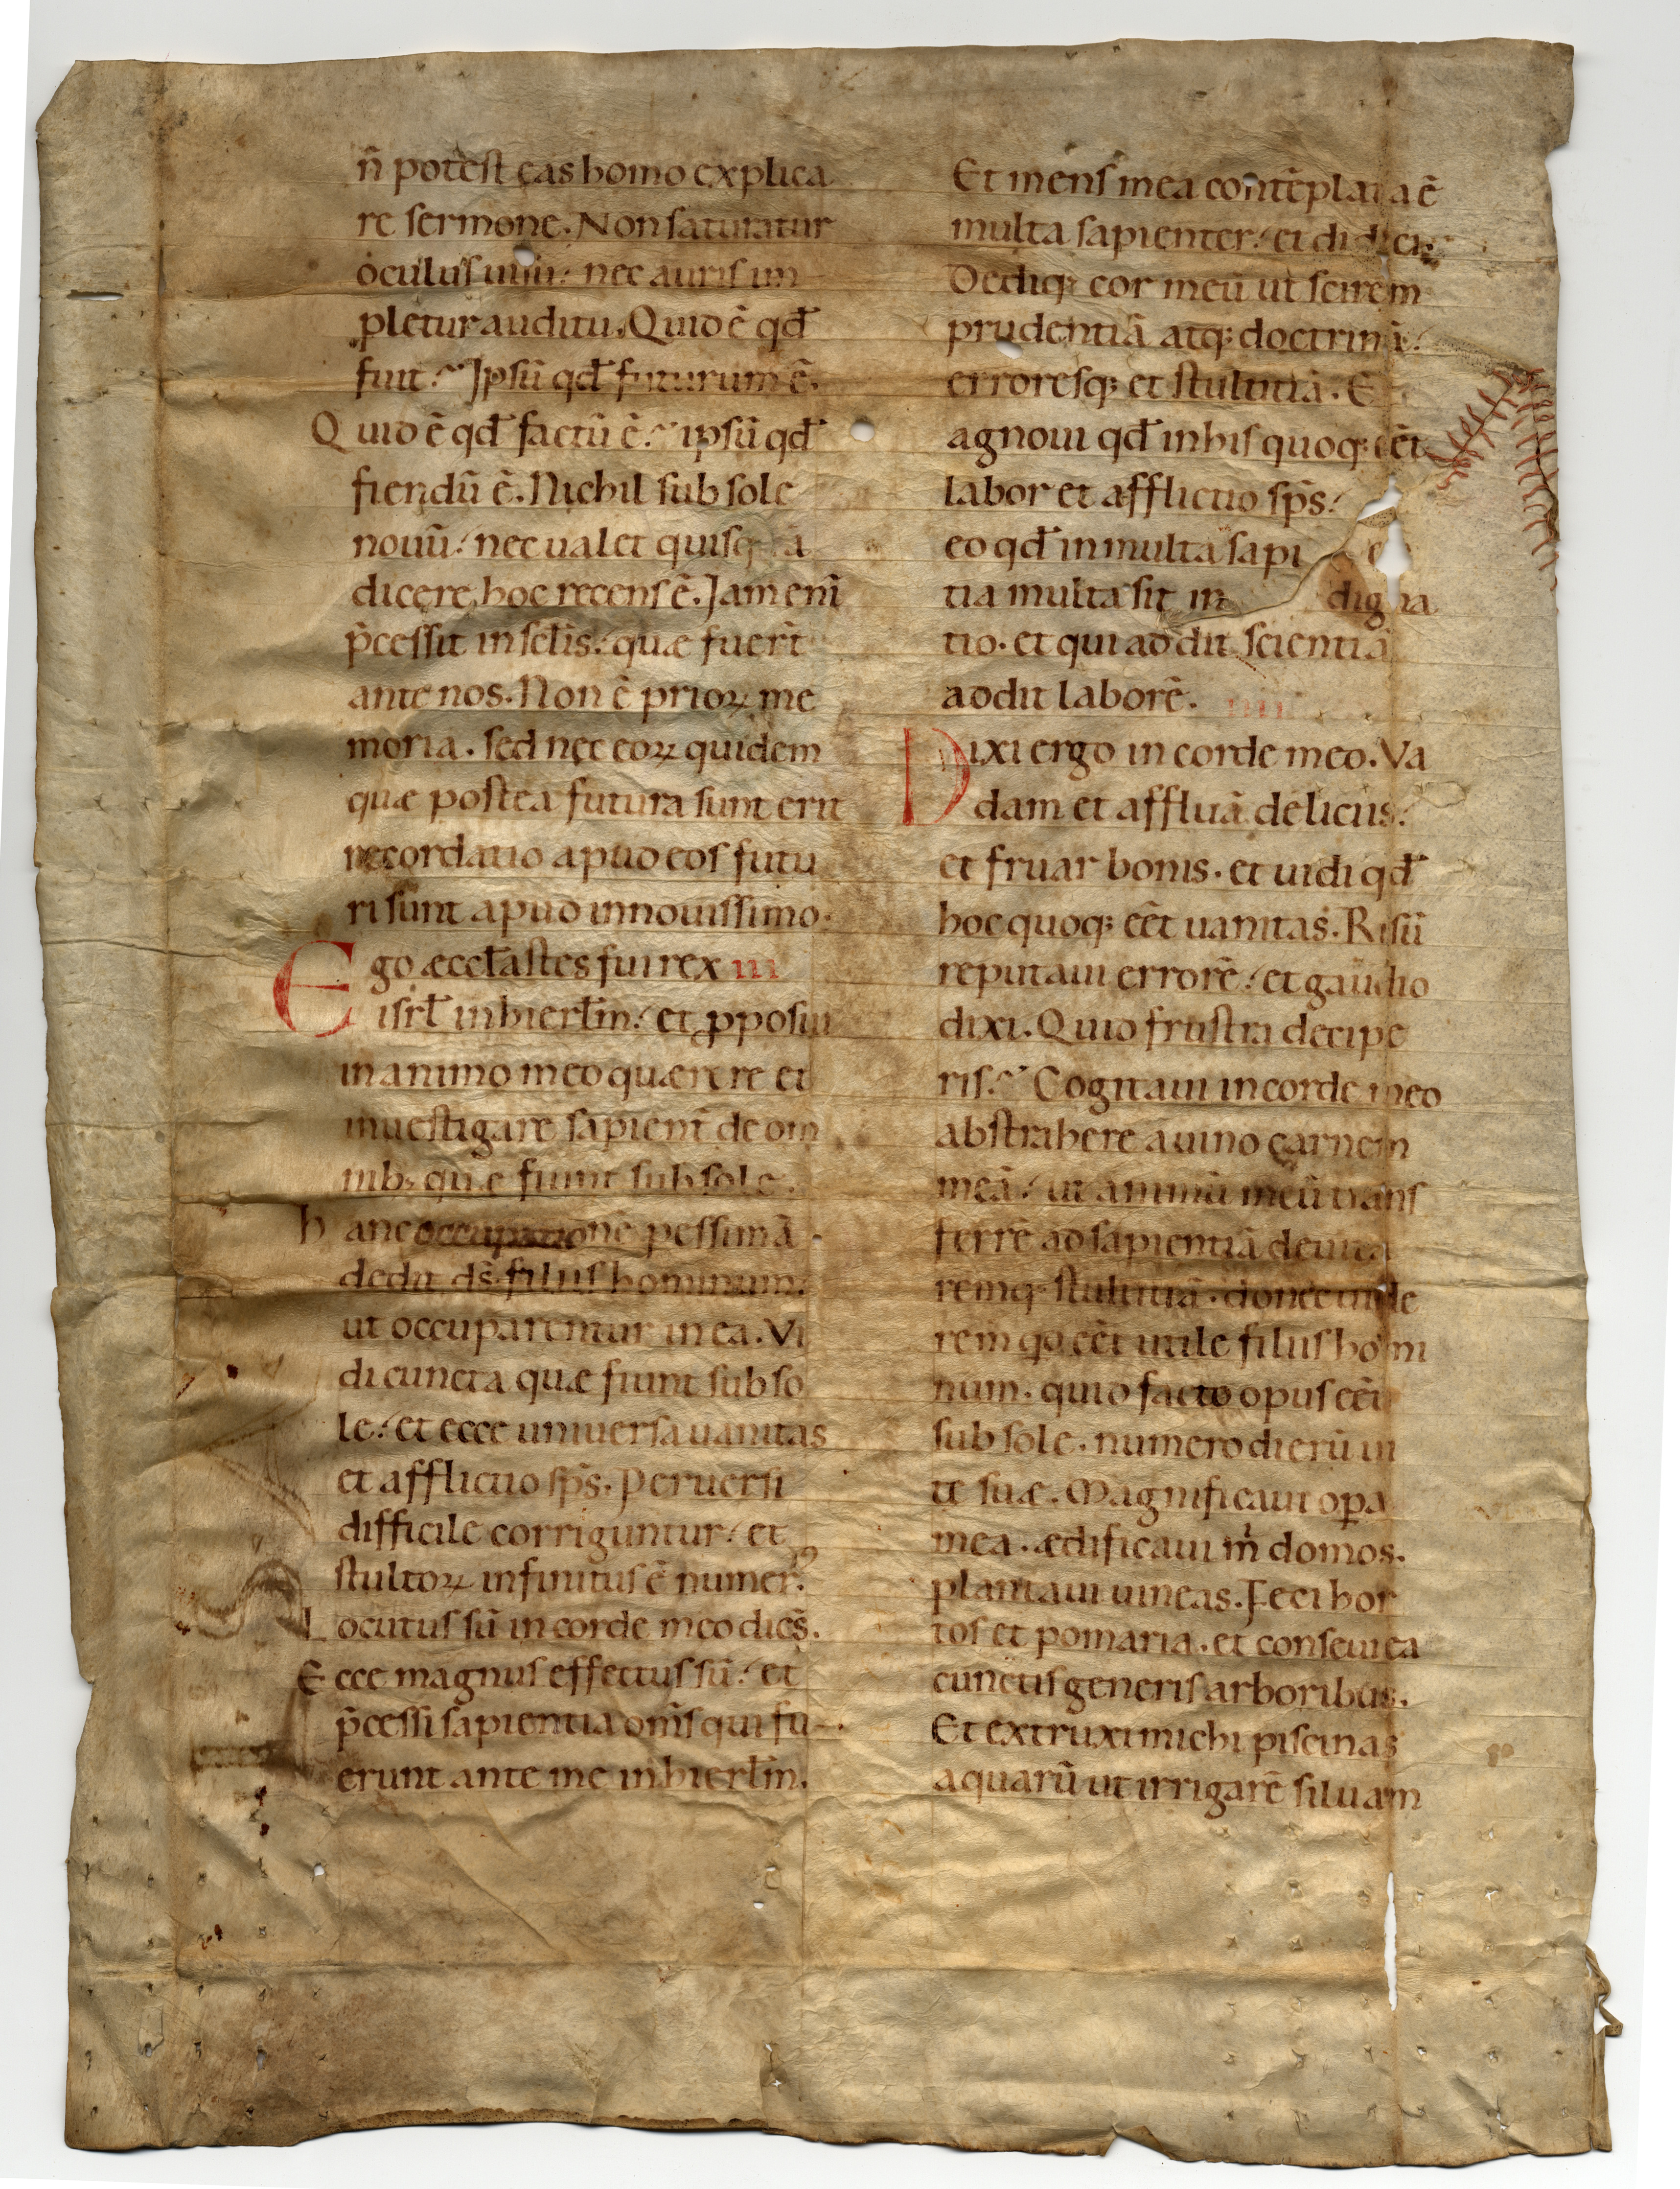 n̄ potest eas homo explica
re sermone. Non saturatur
oculus uisu: nec auris im
pletur auditu. Quid ē qđ
fuit? Ipsū qđ futurum ē.
Quid ē qđ factū ē? ipsū qđ
fiendū ē. Nichil sub sole
nouū: nec ualet quisq a
dicere, hoc recens ē. Jam enī
p̄cessit in sclīs: quæ fuer̄t
ante nos. Non ē prioꝝ me
moria. sed nec eoꝝ quidem
quæ postea futura sunt erit
recordatio apud eos futu
ri sunt apud in nouissimo.
Ego æccłastes fui rex III
isrł in hierłm: et ꝓposui
in animo meo quærere et
inuestigare sapient̄ de om
nib; quæ fiunt sub sole.
hanc occupationē pessimā
dedit ds̄ filiis hominum:
ut occuparentur in ea. Vi
di cuncta quæ fiunt sub so
le: et ecce uniuersa uanitas
et afflictio sp̄s. Peruersi
difficile corriguntur: et
stultoꝝ infinitus ē numerꝰ.
Locutus sū in corde meo dicēs.
Ecce magnus effectus sū: et
p̄cessi sapientia om̄s qui fu
erunt ante me in hierłm.
Et mens mea contēplata ē
multa sapienter: et didici.
Dediq; cor meū ut scirem
prudentiā atq; doctrinā:
erroresq; et stultitiā. E
agnoui qđ in his quoq; eēt
labor et afflictio sp̄s:
eo qđ in multa sapi e
tia multa sit in digna
tio. et qui addit scientiā
addit laborē. IIII
Dixi ergo in corde meo. Va
dam et affluā deliciis:
et fruar bonis. et uidi qđ
hoc quoq; eēt uanitas. Risū
reputaui errorē: et gaudio
dixi. Quid frustra decipe
ris? Cogitaui in corde meo
abstrahere a uino carnem
meā: ut animū meū trans
ferrē ad sapientiā deuita
remq; stultitiā. donec uide
rem qđ eēt utile filiis homi
num. quid facto opus eēt
sub sole. numero dierū ui
te suæ. Magnificaui oꝑa
mea. ædificaui m̄ domos.
plantaui uineas. Feci hor
tos et pomaria. et conseui ea
cunctis generis arboribus.
Et extruxi michi piscinas
aquarū ut irrigarē siluam